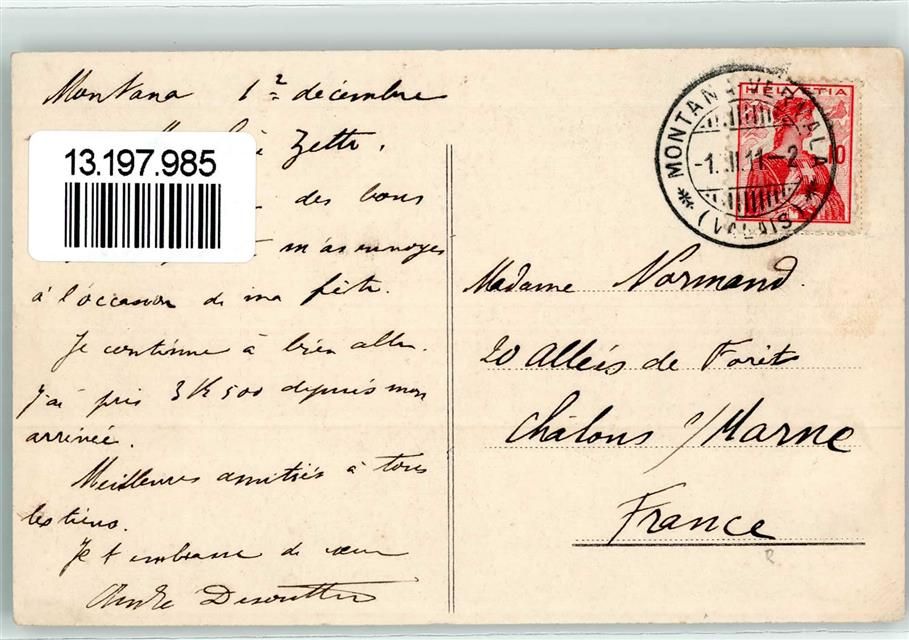 Montana 1= 2 décembre
Zette,
13.197.985
des bons
m'as envoyés
à l'occasion de ma fête.
Je continue à bien aller.
J'ai pris 3 K 500 depuis mon
arrivée.
Meilleures amitiés à tous
les tiens.
Je t'embrasse de cœur
André
MONTANA-VERMALA
HELVETIA
10
(VALAIS)
Madame Normand.
20 Allées de Forêts
Châlons s/Marne
France
R